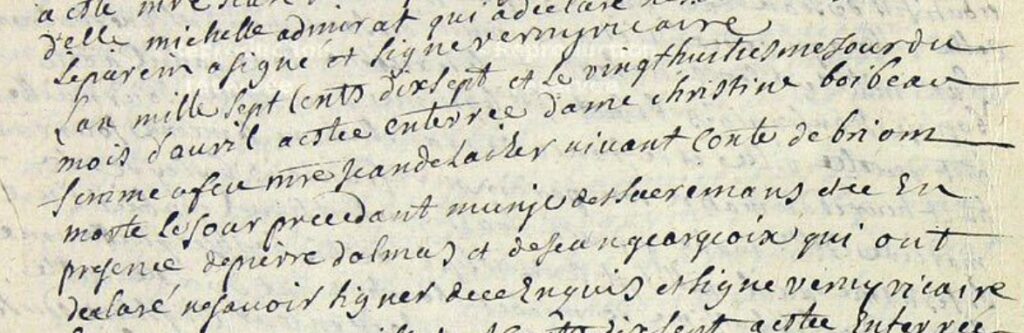 delle michelle admirat qui a declare
le parein a signé et signe verny vicaire
l'an mille sept cents dixsept et le vingthuitiesme jour du
mois d'auril a estee enterree dame christine boibeau
femme a feu mre jean de vivant conte de briom
morte le jour precedant munje des sacremans elee En
presence de pierre dalmas et de jean georgeoix qui ont
declaré ne savoir signer de ce Enquis et signe verny vicaire
dixsept a estee Enterrée